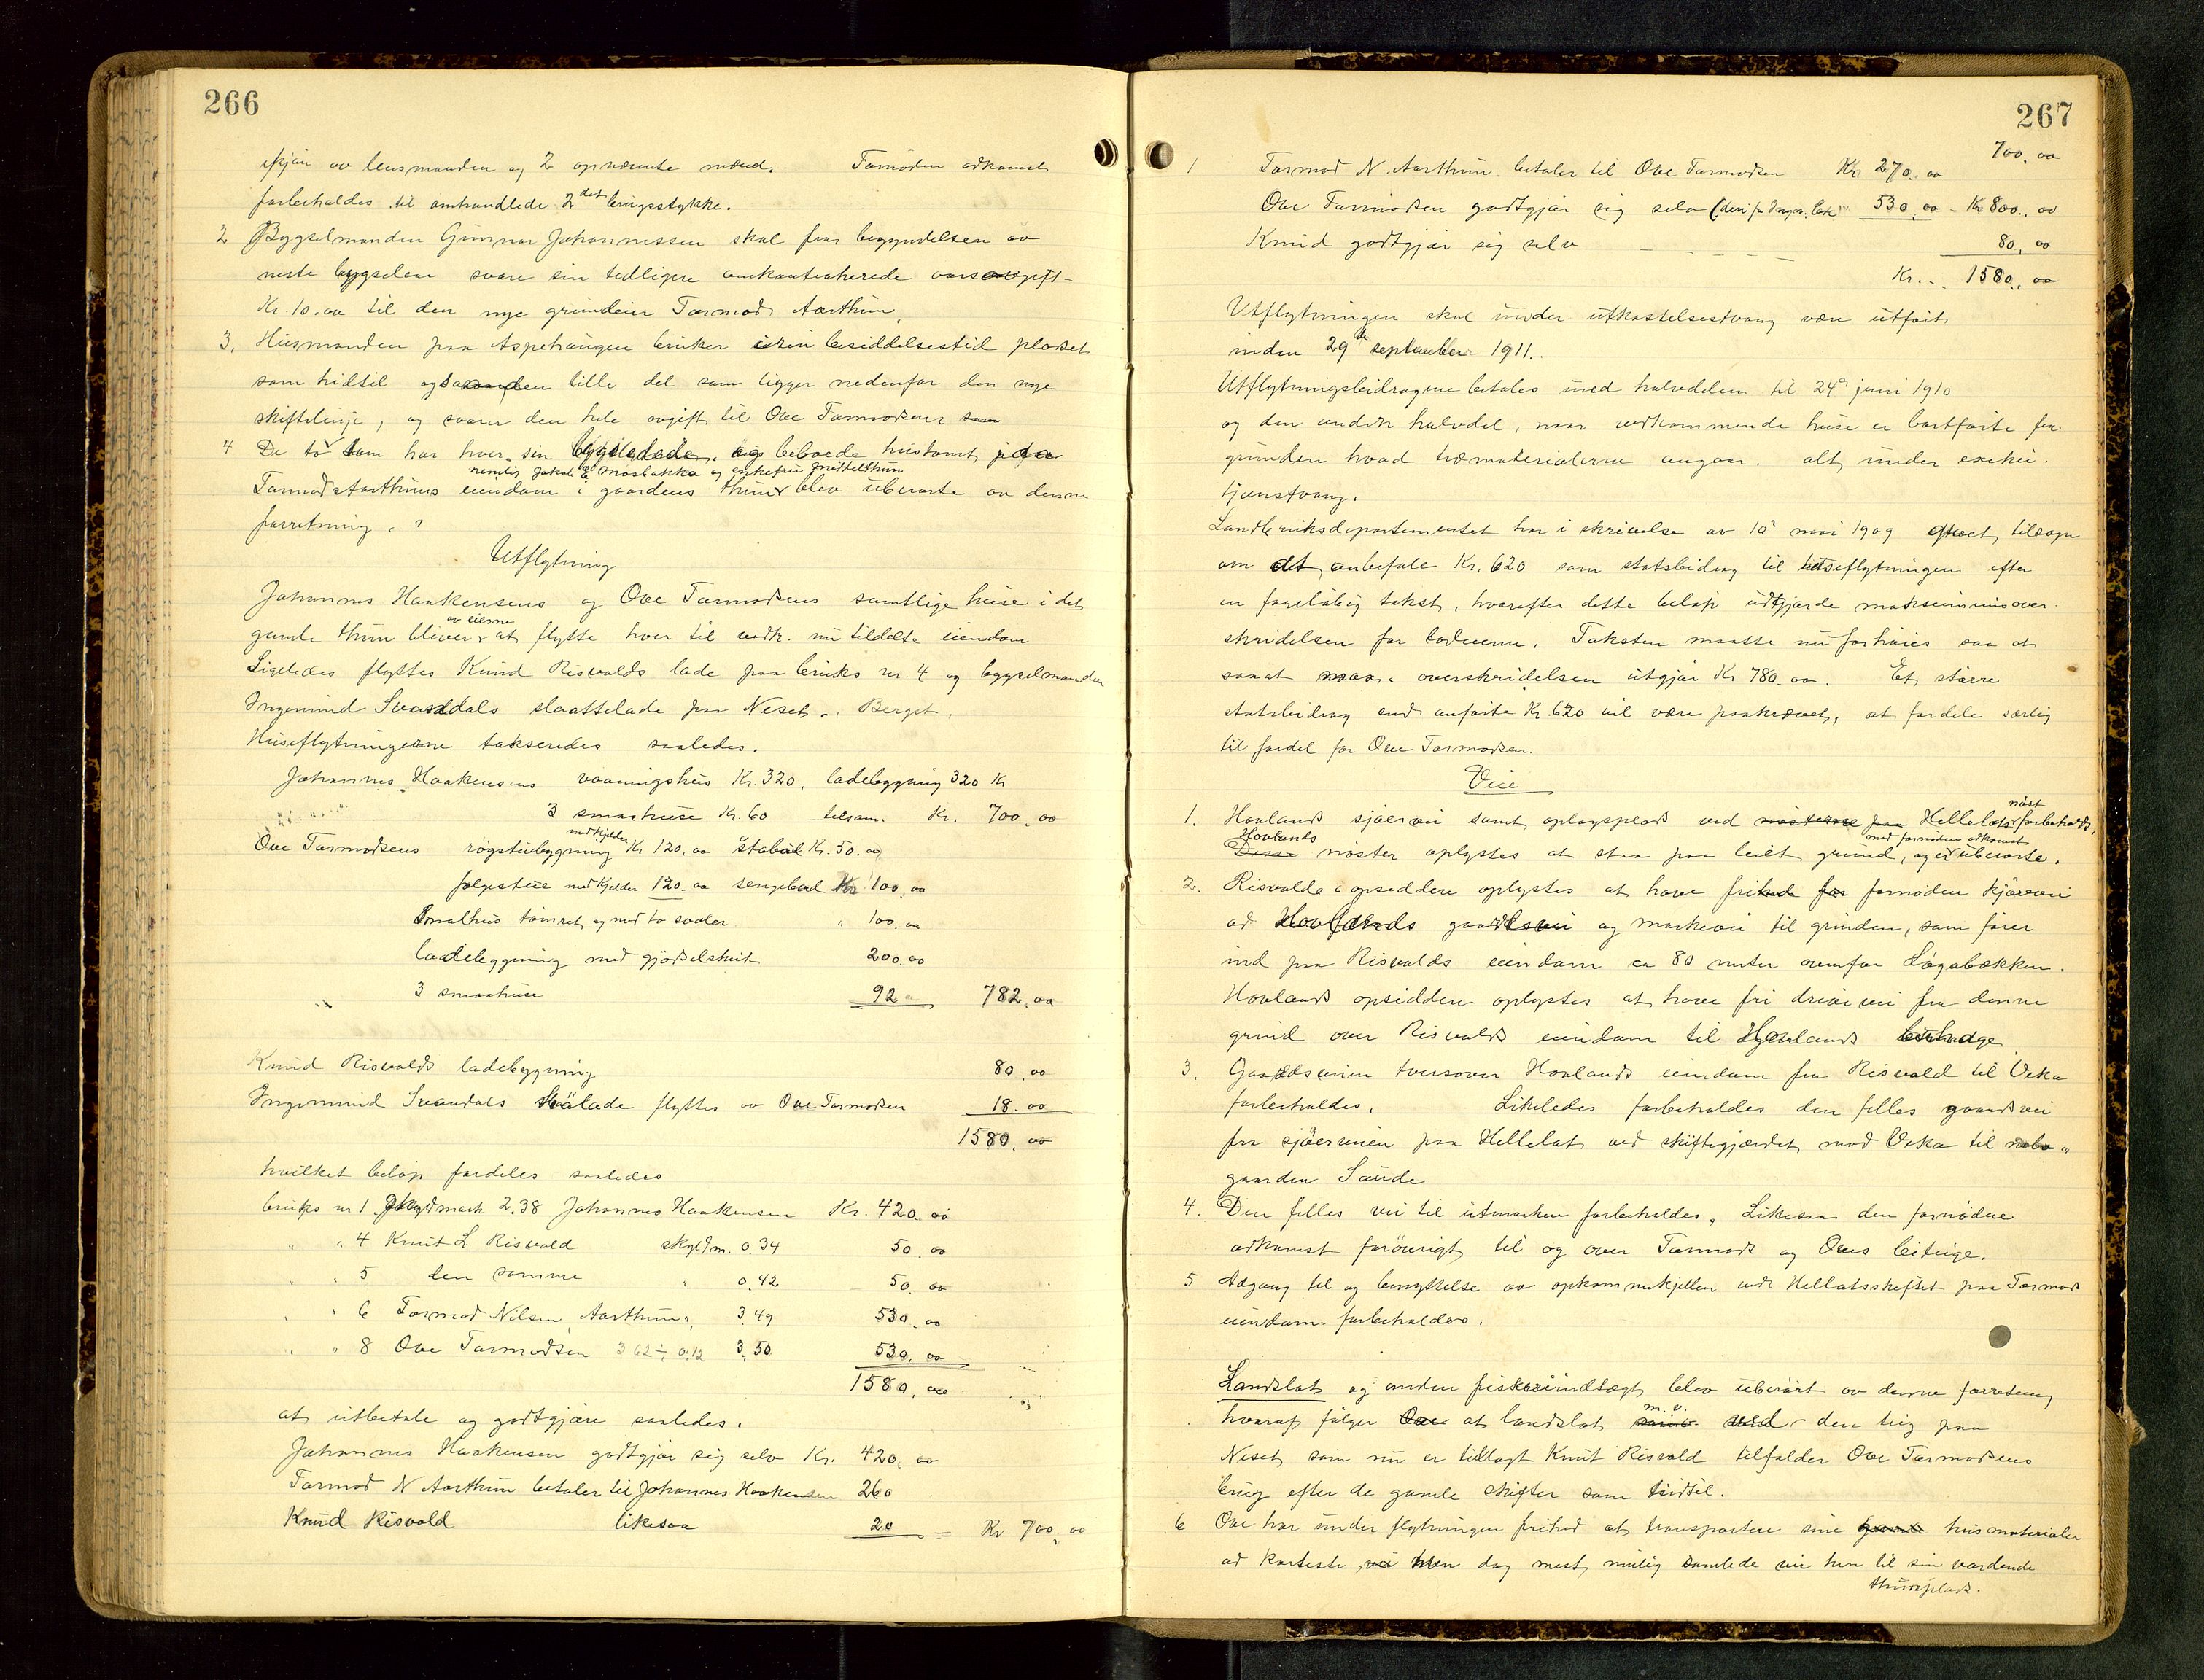 266
skjøn av lensmanden og 2 opnævnte mænd. Fornøden adkomst
forbeholdes til omhandlede 2det brugsstykke.
2 Bygselmanden Gunnar Johannessen skal fra begyndelsen av
neste bygselaar svare sin tidligere omkontraherede aarsavgift
Kr. 10.00 til den nye grundeier Tormod Aarthun.
3. Husmanden paa Aspehaugen bruker i sin besiddelsestid pladsen
som hidtil ogsaa den lille del som ligger nedenfor den nye
skiftelinje, og svarer den hele avgift til Ove Tormodsen
4 De to som har hver sin beboede hustomt paa
nemlig Jakob Mosbakka og enkefru
Tormod Aarthuns eiendom i gaardens thun blev uberørte av denne
forretning.
Utflytning
Johannes Haakensens og Ove Tormodsens samtlige huse i det
av eierne
gamle thun bliver at flytte hver til vedk. nu tildelte eiendom
Ligeledes flyttes Knud Risvolds lade paa bruks nr. 4 og bygselmanden
Ingemund Svandals slaattelade paa Neset, Berget.
Huseflytningerne takseredes saaledes.
Johannes Haakensens vaaningshus Kr. 320, ladebygning 320 Kr
3 smaahuse Kr. 60 tilsam. Kr. 700.00
med kjelder
Ove Tormodsens røgstuebygning Kr 120.00 stabur Kr. 50.00
følgestue med kjelder 120.00 sengebud Kr 100.00
Smalhus tømret og med to svaler " 100.00
ladebygning med gjødselskut 200.00
3 smaahuse 92 782.00
Knud Risvolds ladebygning 80.00
Ingemund Svandals lade flyttes av Ove Tormodsen 18.00
1580.00
hvilket beløp fordeles saaledes
bruks nr 1 skyldmark 2.38 Johannes Haakensen Kr. 420.00
" " 4 Knut L. Risvold skyldm. 0.34 50.00
" " 5 den samme " 0.42 50.00
" " 6 Tormod Nilsen Aarthun " 3.49 530.00
" " 8 Ove Tormodsen 3 62 ÷ 0.12 3.50 530.00
1580.00
at utbetale og godtgjøre saaledes.
Johannes Haakensen godtgjør sig selv Kr. 420.00
Tormod N Aarthun betaler til Johannes Haakensen 260
Knud Risvold likesaa 20 = Kr 700.00
267
700.00
1 Tormod N. Aarthun betaler til Ove Tormodsen Kr. 270.00
Ove Tormodsen godtgjør sig selv 530.00 - Kr 800.00
Knud godtgjør sig selv 80.00
Kr. 1580.00
Utflytningen skal under utkastelsestvang være utført
inden 29de september 1911.
Utflytningsbidragene betales med halvdelen til 24de juni 1910
og den anden halvdel, naar vedkommende huse er bortførte fra
grunden hvad træmaterialerne angaar. alt under exeku-
tjonstvang.
Landbruksdepartementet har i skrivelse av 10de mai 1909 givet tilsagn
om at anbefale Kr. 620 som statsbidrag til huseflytningen efter
en foreløbig takst, hvorefter dette beløp utgjorde maksimumsover-
skridelsen for lodeierne. Taksten maatte nu forhøies saa at
overskridelsen utgjør Kr 780.00. Et større
statsbidrag end anførte Kr. 620 vil være paakrævet, at fordele særlig
til fordel for Ove Tormodsen.
Veie
nøst
1. Hovlands sjøervei samt oplagsplads ved Hellelats forbeholdes,
Hovlands med fornøden adkomst
nøster oplystes at staa paa leiet grund, og er uberørte.
2. Risvolds opsiddere oplystes at have frihed for fornøden kjørevei
ad Hovlands gaardsvei og markevei til grinden, som fører
ind paa Risvolds eiendom ca 80 meter ovenfor Løgabækken.
Hovlands opsiddere oplystes at have fri drivvei fra denne
grind over Risvolds eiendom til Hovlands buhage
3. Gaardsveien tversover Hovlands eiendom fra Risvold til Veka
forbeholdes. Likeledes forbeholdes den felles gaardsvei
fra sjøerveien paa Hellelat ved skiftegjærdet mod Veka til nabo-
gaarden Saude
4. Den felles vei til utmarken forbeholdes, Likesaa den fornødne
adkomst forøvrigt til og over Tormods og Oves beiteige.
5 Adgang til og benyttelse av opkommekjellen ved Hellatsskiftet paa Tormods
eiendom forbeholdes.
Landslot og anden fiskeriindtægt blev uberørt av denne forretning
m.v.
hvoraf følger at landslot ved den teig paa
Neset, som nu er tillagt Knut Risvold tilfalder Ove Tormodsens
brug efter de gamle skifter som hidtil.
6 Ove har under flytningen frihed at transportere sine husmaterialer
ad korteste dog mest mulig samlede vei hen til sin vordende
thunplads.